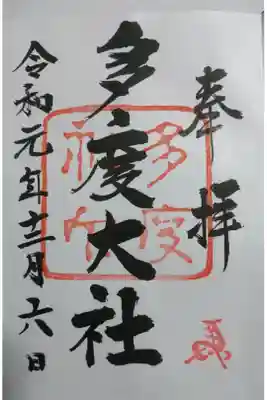 奉拝
多度
多度大社
令和元年十二月六日